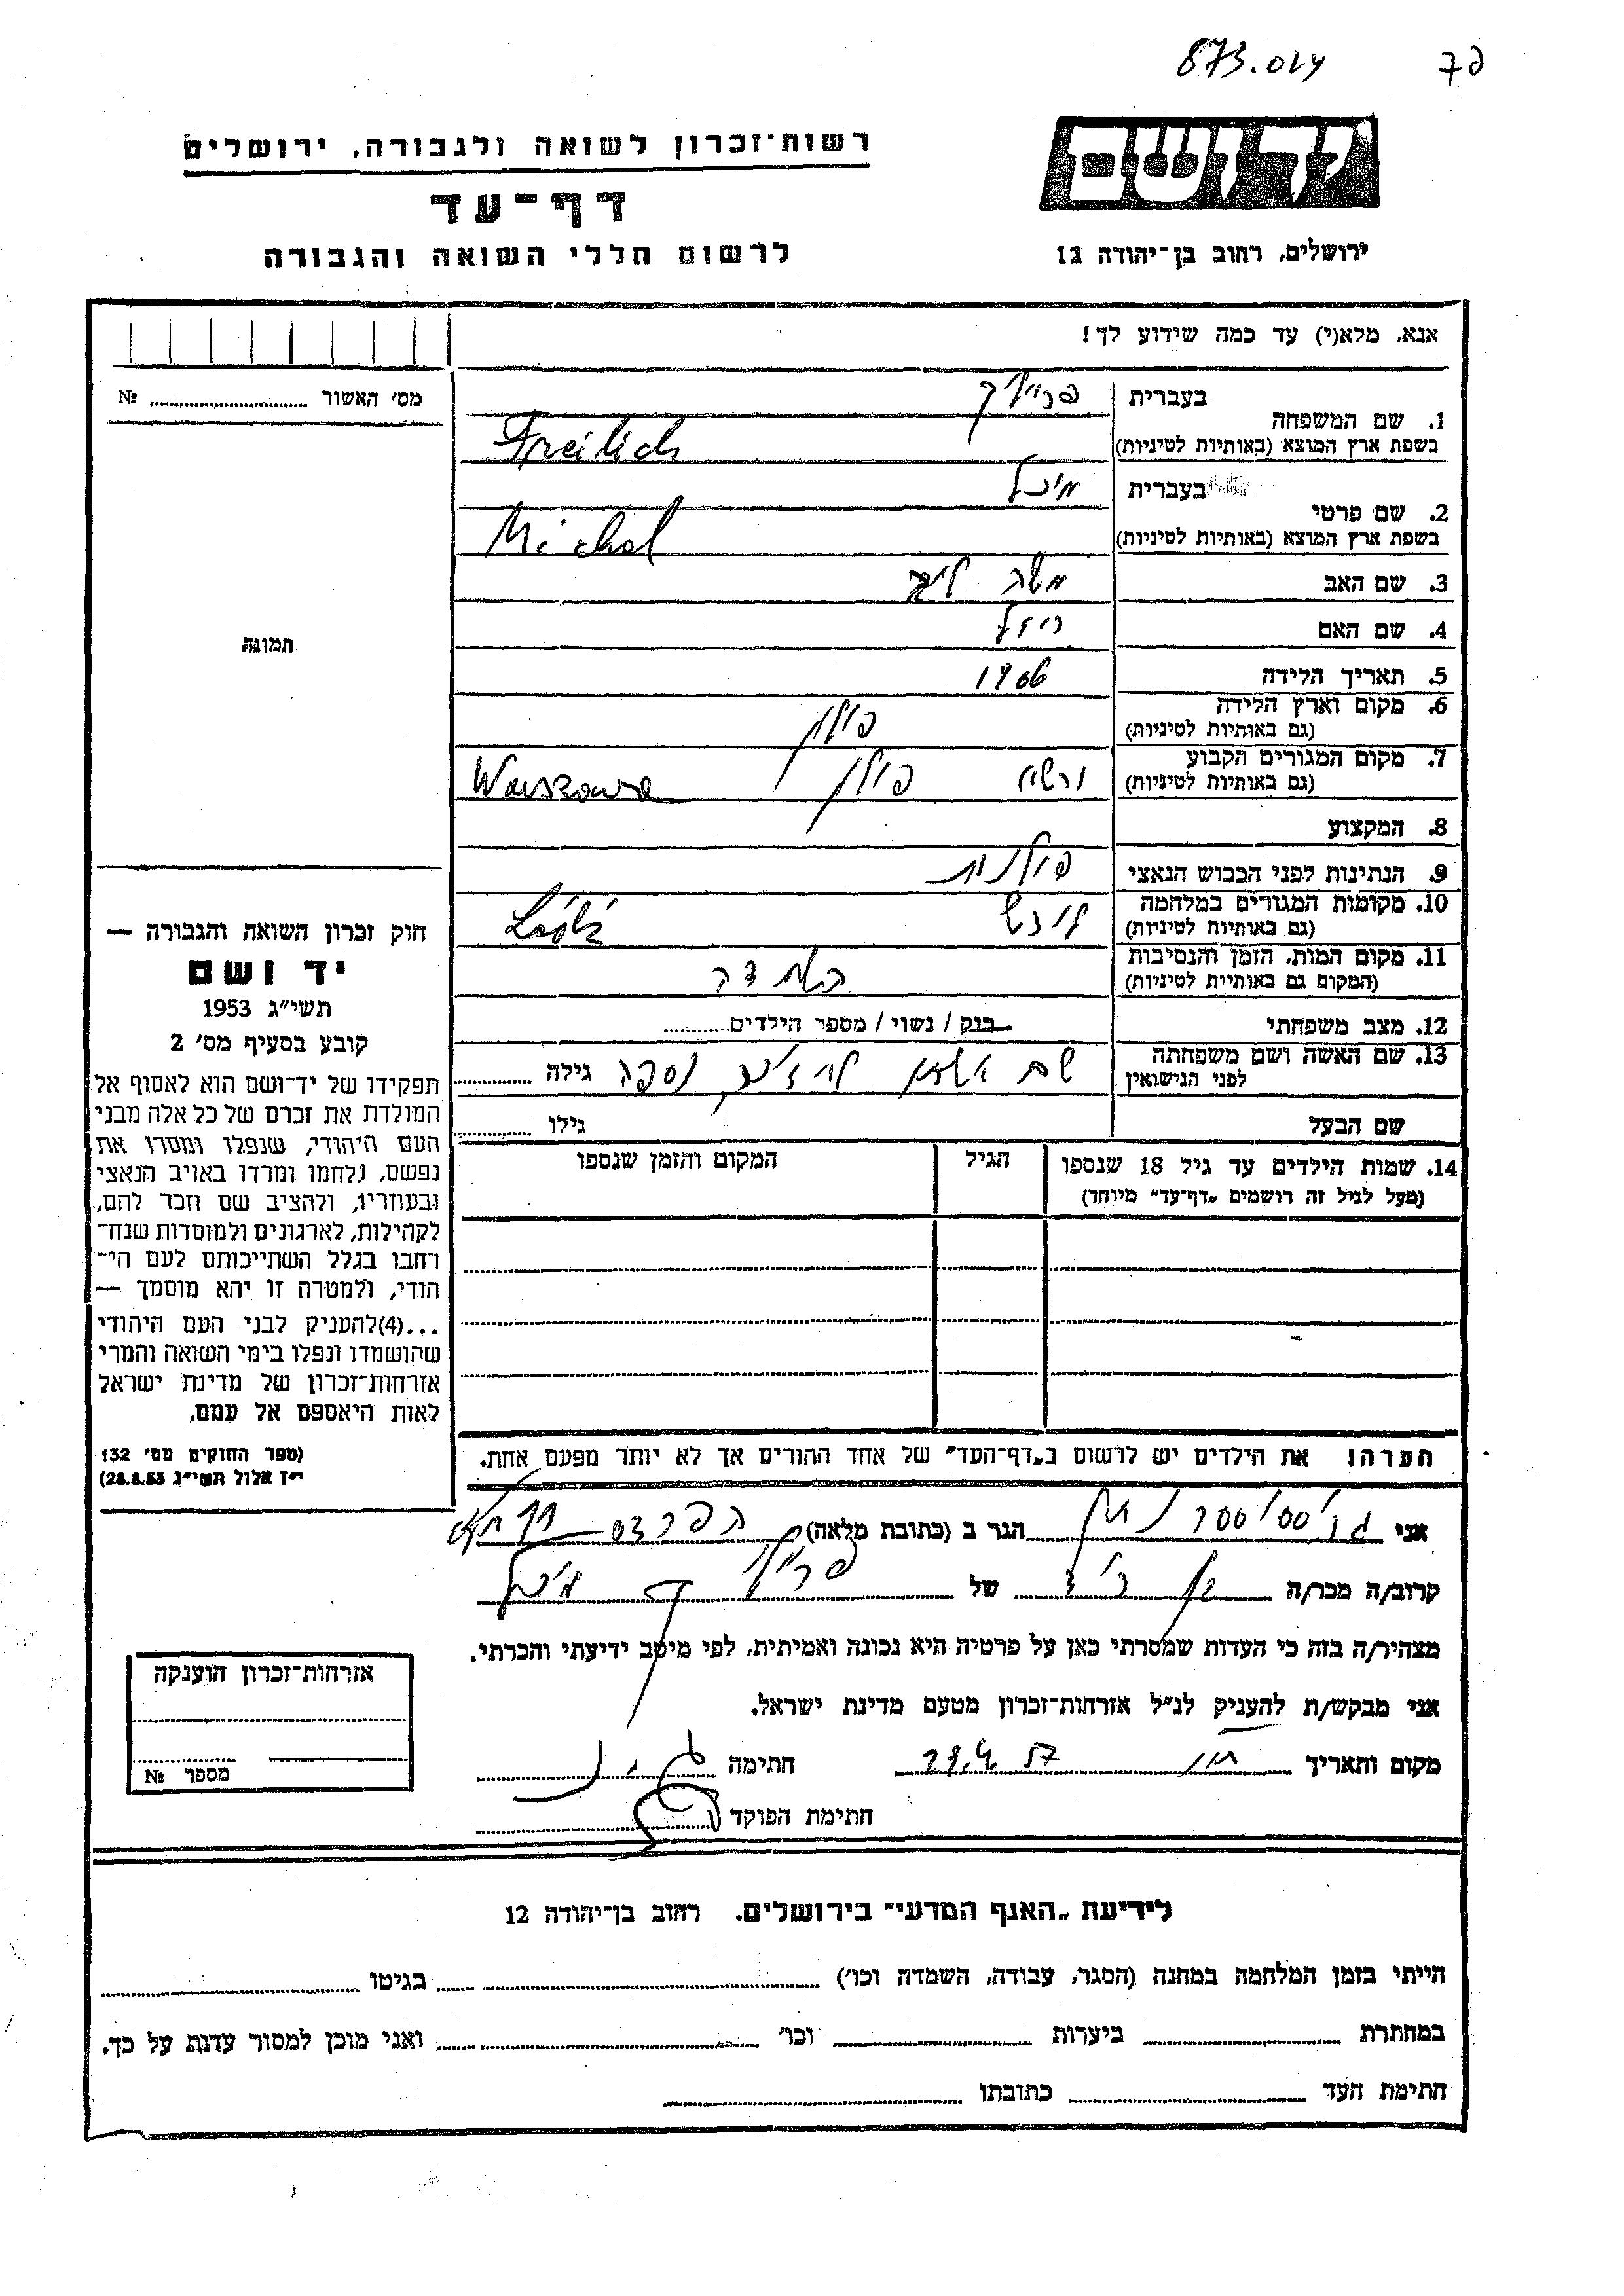 873.024 פד
יד ושם
ירושלים, רחוב בן־יהודה 12
רשות־זכרון לשואה ולגבורה, ירושלים
דף־עד
לרשום חללי השואה והגבורה
אנא, מלא(י) עד כמה שידוע לך!
מס׳ האשור № 
1. שם המשפחה
בעברית פריליך
בשפת ארץ המוצא (באותיות לטיניות) Freilich
2. שם פרטי
בעברית מיכל
בשפת ארץ המוצא (באותיות לטיניות) Michal
3. שם האב משה לייב
4. שם האם
5. תאריך הלידה 1906
6. מקום וארץ הלידה פולין
(גם באותיות לטיניות)
7. מקום המגורים הקבוע ורשה פולין Warszawa
(גם באותיות לטיניות)
8. המקצוע
9. הנתינות לפני הכבוש הנאצי פולנית
10. מקומות המגורים במלחמה לודש Łódź
(גם באותיות לטיניות)
11. מקום המות, הזמן והנסיבות השמדה
(המקום גם באותיית לטיניות)
12. מצב משפחתי רוק / נשוי / מספר הילדים
13. שם האשה ושם משפחתה
לפני הנישואין שם נספה גילה
שם הבעל גילו
14. שמות הילדים עד גיל 18 שנספו הגיל המקום והזמן שנספו
(מעל לגיל זה רושמים „דף־עד״ מיוחד)
הערה! את הילדים יש לרשום ב„דף־העד״ של אחד ההורים אך לא יותר מפעם אחת.
תמונה
חוק זכרון השואה והגבורה —
יד ושם
תשי״ג 1953
קובע בסעיף מס׳ 2
תפקידו של יד־ושם הוא לאסוף אל
המולדת את זכרם של כל אלה מבני
העם היהודי, שנפלו ומסרו את
נפשם, נלחמו ומרדו באויב הנאצי
ובעוזריו, ולהציב שם וזכר להם,
לקהילות, לארגונים ולמוסדות שנח־
רחבו בגלל השתייכותם לעם הי־
הודי, ולמטרה זו יהא מוסמך —
...(4)להעניק לבני העם היהודי
שהושמדו ונפלו בימי השואה והמרי
אזרחות־זכרון של מדינת ישראל
לאות היאספם אל עמם.
(ספר החוקים מס׳ 132
י״ז אלול תשי״ג 28.8.53)
אני הגר ב (כתובת מלאה) הפרדס
קרוב/ה מכר/ה בן דוד של פריליך מיכל
מצהיר/ה בזה כי העדות שמסרתי כאן על פרטיה היא נכונה ואמיתית, לפי מיטב ידיעתי והכרתי.
אני מבקש/ת להעניק לנ״ל אזרחות־זכרון מטעם מדינת ישראל.
מקום ותאריך 29.4.57 חתימה
חתימת הפוקד
אזרחות־זכרון הוענקה
מספר №
לידיעת „האגף המדעי״ בירושלים. רחוב בן־יהודה 12
הייתי בזמן המלחמה במחנה (הסגר, עבודה, השמדה וכו׳) בגיטו
במחתרת ביערות וכו׳ ואני מוכן למסור עדות על כך.
חתימת העד כתובתו